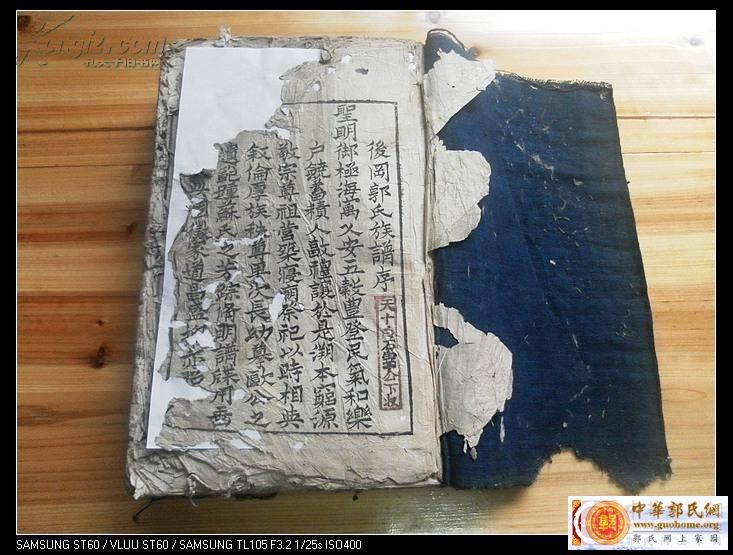 Kongfz.com
孔夫子旧书网
後岡郭氏族譜序
聖明御極海萬乂安五穀豐登民氣和樂
户饒蓄積人禮讓於是溯本窮源
敬宗尊祖營築寢廟祭祀以時相與
敘倫厚族秩尊卑次長幼歐公之
遺範踵蘇氏之芳踪脩明譜牒用
中華郭氏網
www.guohome.org
郭氏网上家園
SAMSUNG ST60 / VLUU ST60 / SAMSUNG TL105 F3.2 1/25s ISO400